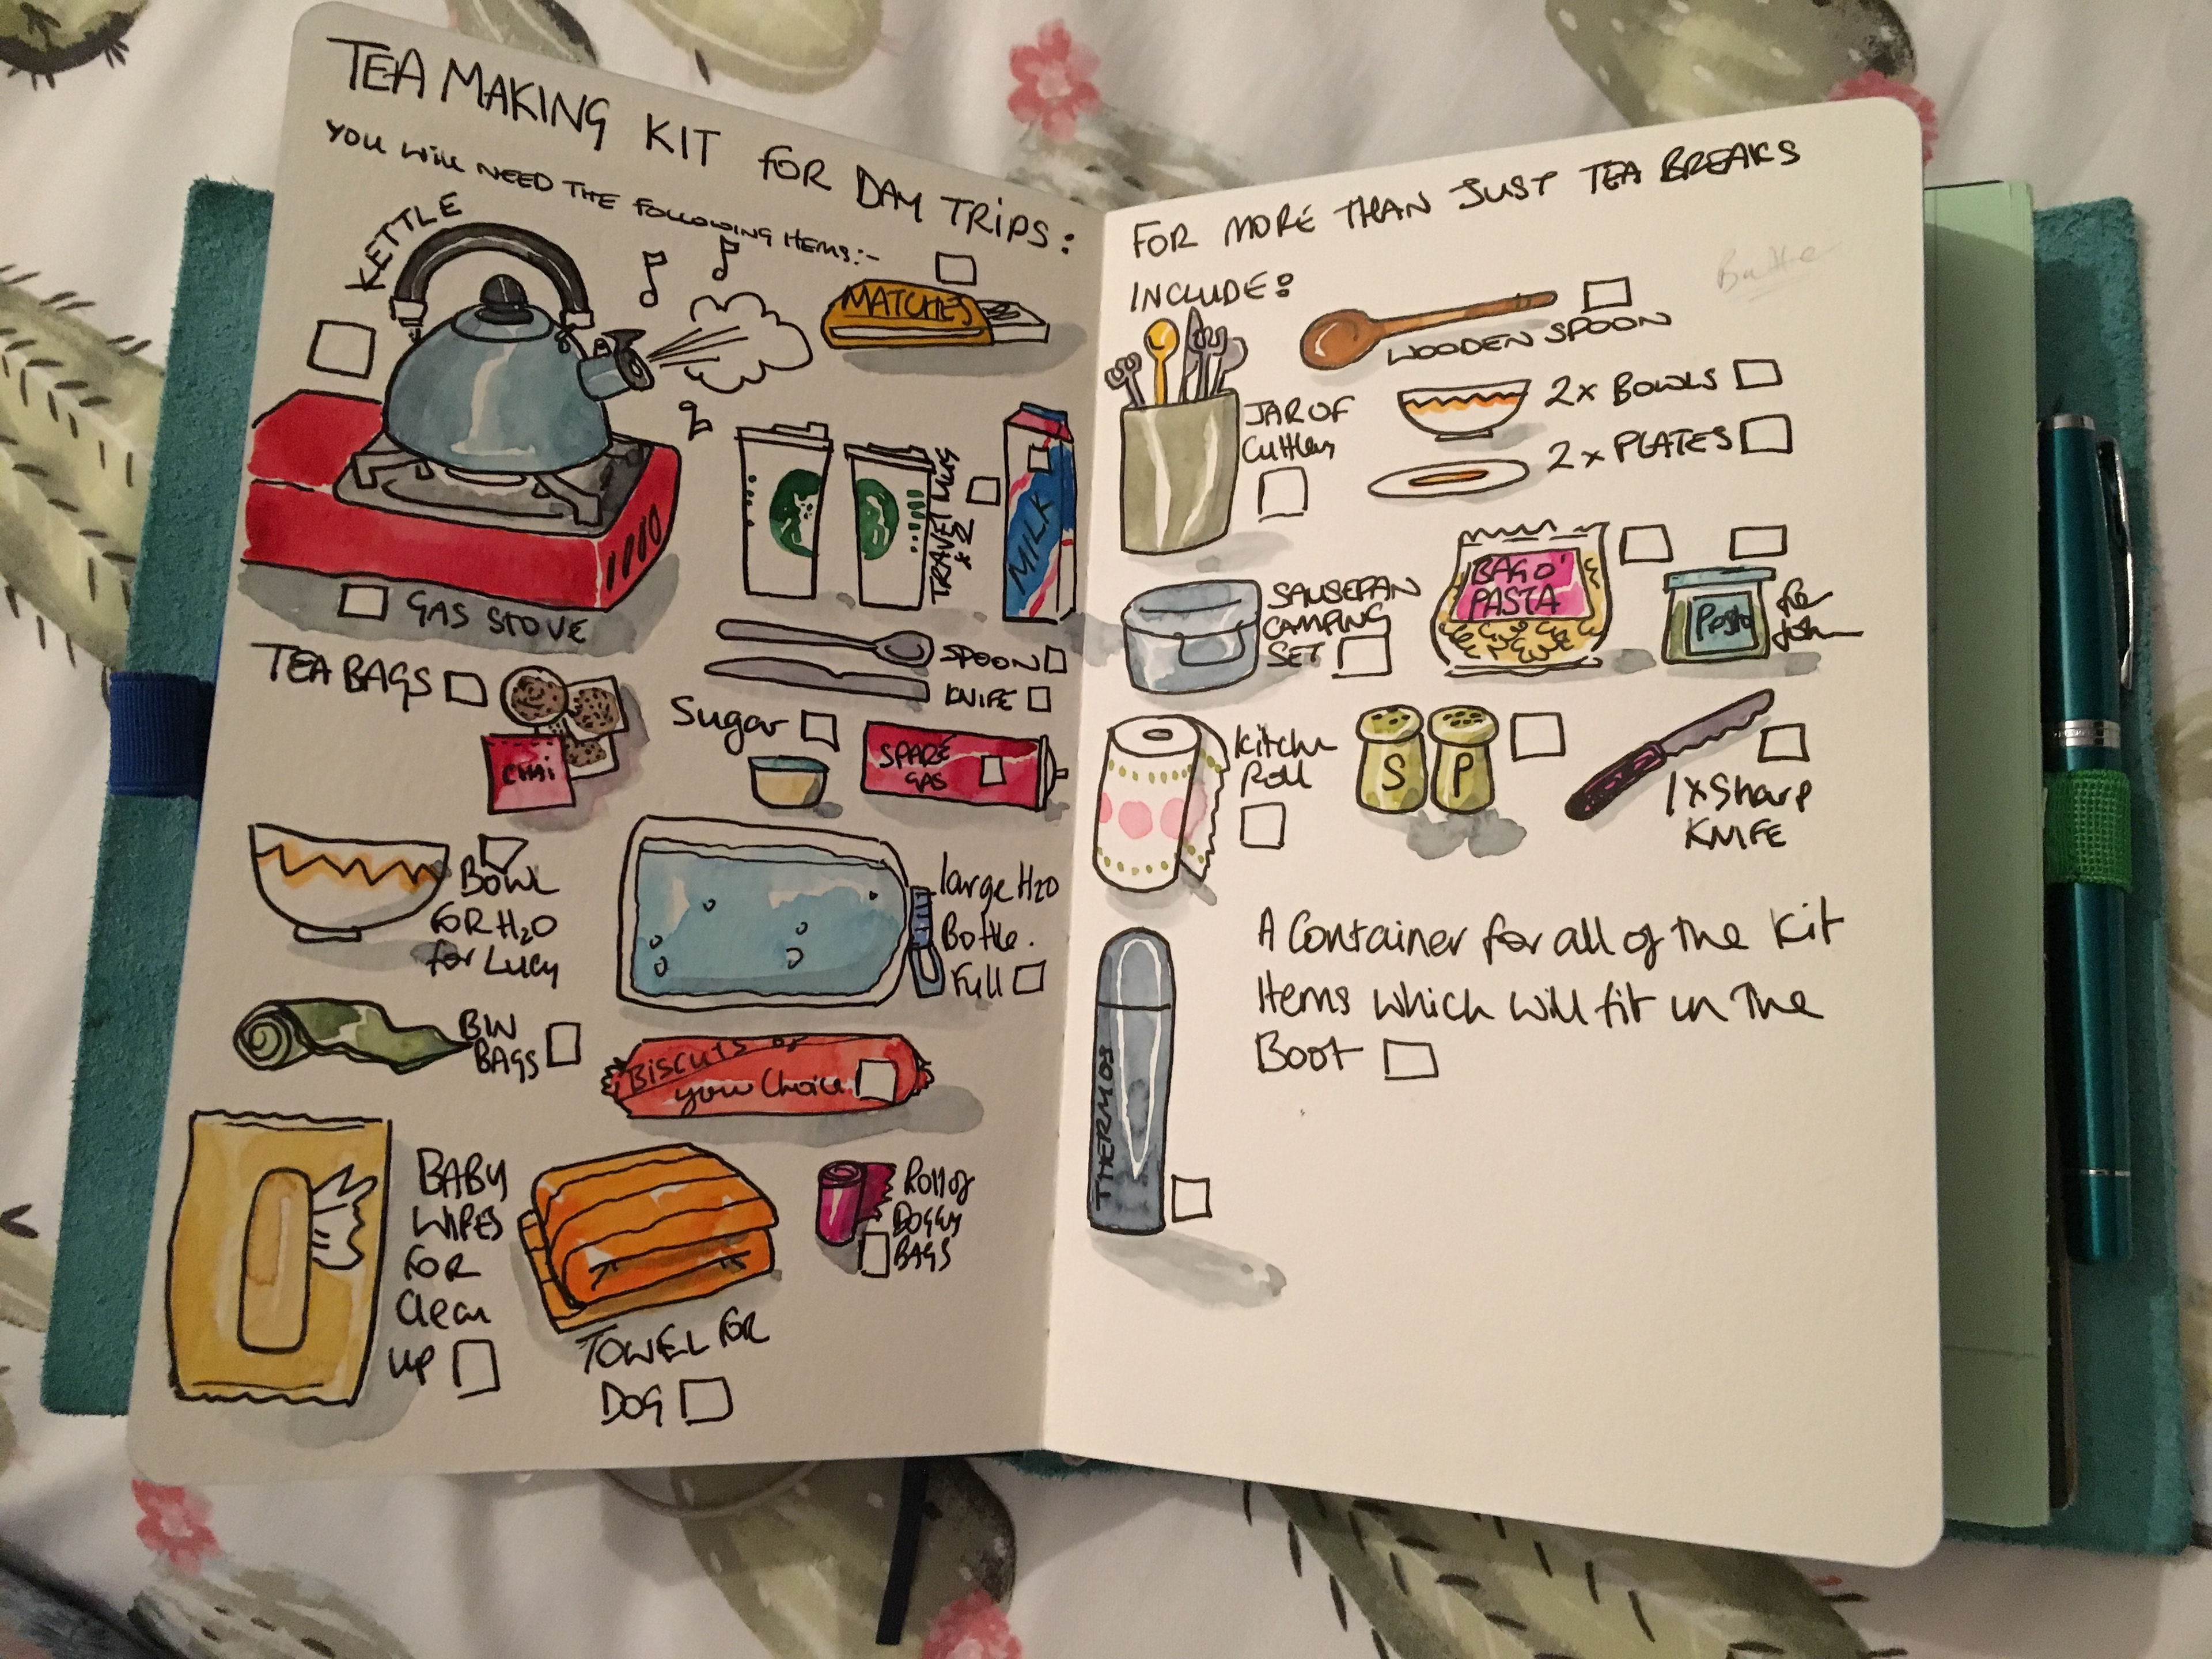 TEA MAKING KIT FOR DAY TRIPS:
YOU WILL NEED THE FOLLOWING ITEMS:-
KETTLE
MATCHES
TRAVEL MUG
x 2
MILK
GAS STOVE
TEA BAGS
CHAI
SPOON
KNIFE
Sugar
SPARE
GAS
BOWL
FOR H2O
for Lucy
large H2O
Bottle.
Full
BIN
BAGS
BISCUITS of
your Choice
BABY
WIPES
FOR
Clean
UP
TOWEL FOR
DOG
Roll of
DOGGY
BAGS
FOR MORE THAN JUST TEA BREAKS
INCLUDE:
WOODEN SPOON
JAR OF
Cuttlery
2x BOWLS
2x PLATES
SAUSEPAN
CAMPING
SET
BAG O'
PASTA
Pesto
Kitchen
Roll
S
P
1x Sharp
KNIFE
A Container for all of the Kit
Items which will fit in the
Boot
THERMOS